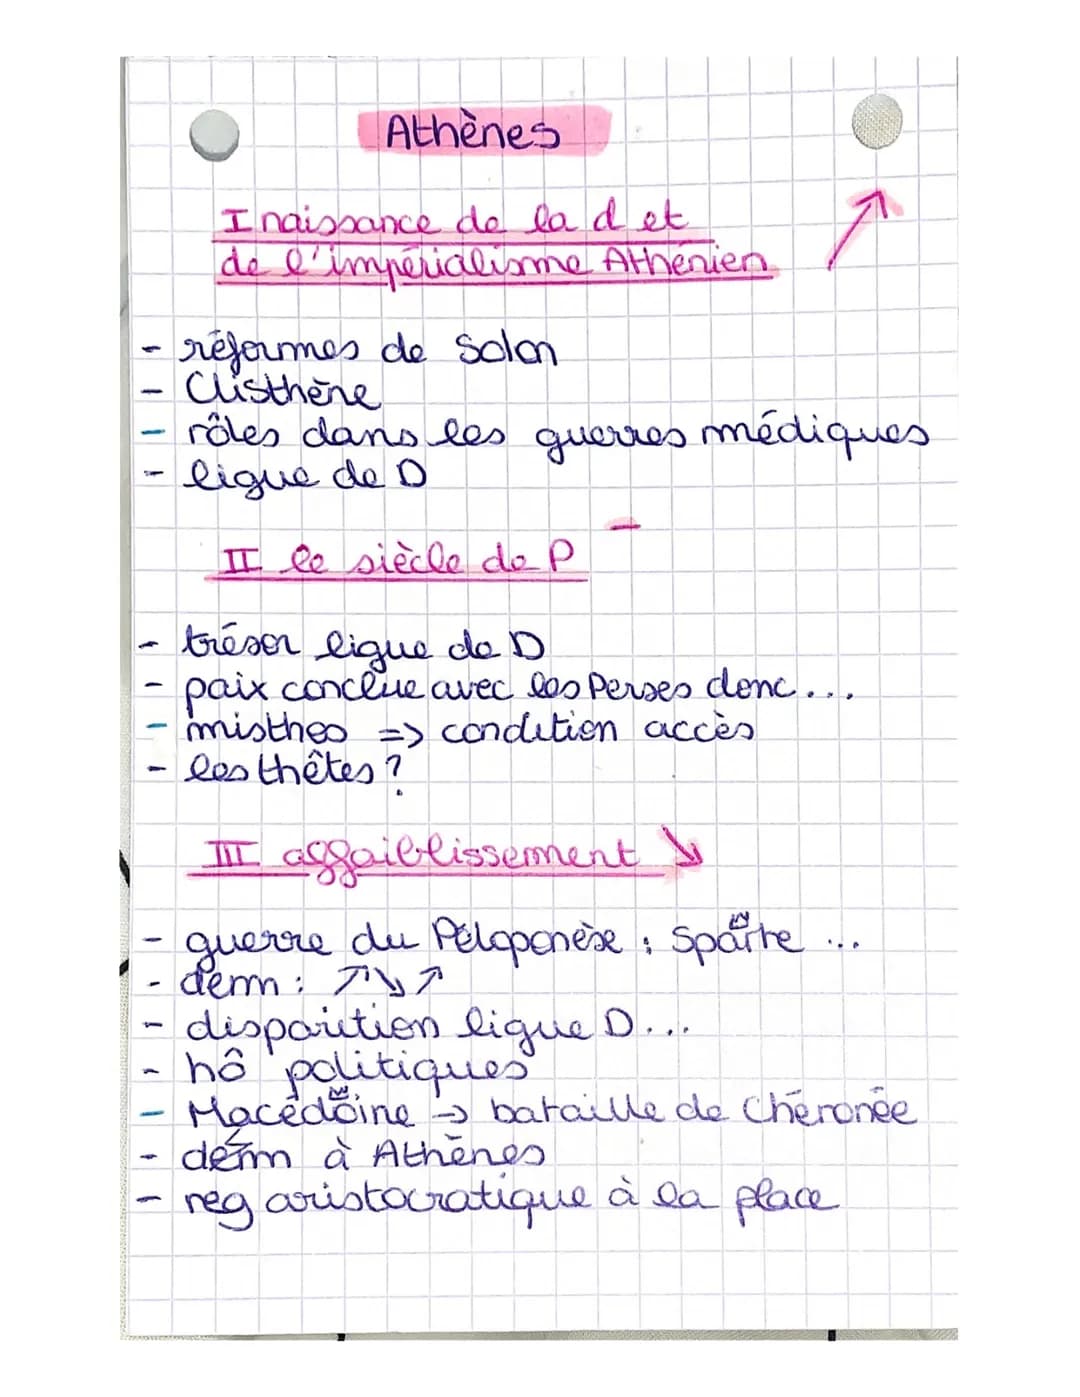 Athènes
I naissance de la d et
de l'impérialisme Athénien
- réformes de Solon
- Clisthène
- rôles dans les guerres médiques
- ligue de D
II le siècle de P
- trésor ligue de D
- paix conclue avec les Perses donc...
- misthos => condition accès
- les thêtes ?
III affaiblissement ↘
- guerre du Péloponèse : Sparte ...
- dém : ↗↘↗
- disparition ligue D...
- hô politiques
- Macédoine → bataille de Chéronée
- dém à Athènes
- reg aristocratique à la place